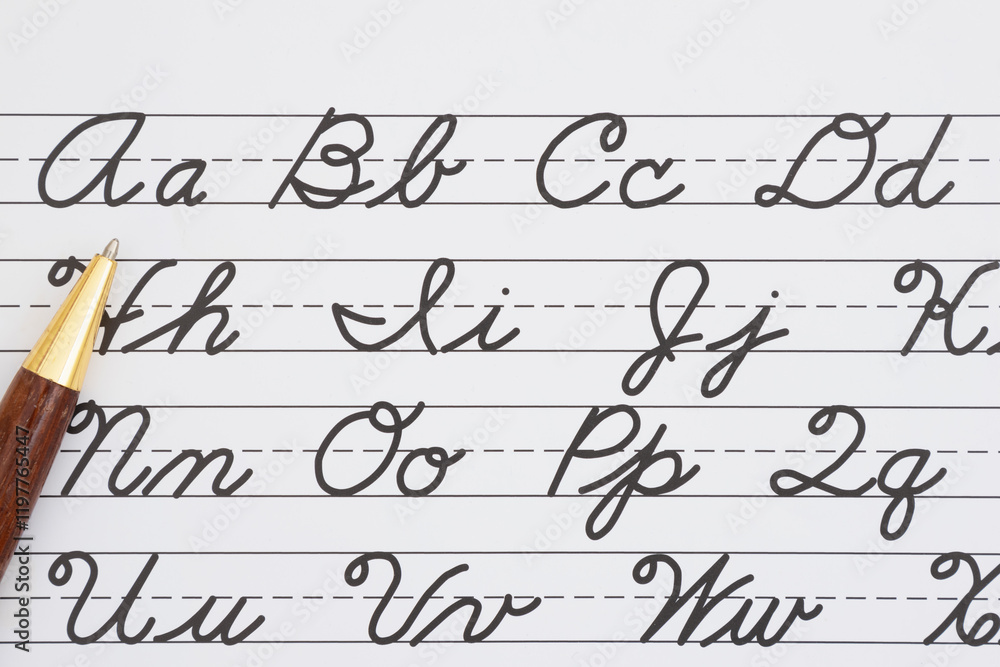 Aa Bb Cc Dd
Hh Ii Jj K
Nn Oo Pp Qq
Uu Vv Ww X
Adobe Stock | #1197765447